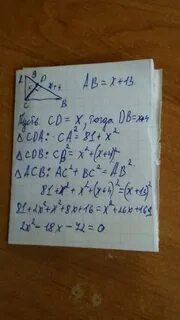 A 9 D x+4
AB = x+13
C B
Пусть CD = X, тогда DB=x+4
△CDA: CA² = 81 + x²
△CDB: CB² = x²+(x+4)²
△ACB: AC² + BC² = AB²
81+x²+x²+(x+4)²=(x+13)²
81+2x²+x²+8x+16=x²+26x+169
2x²-18x-72=0